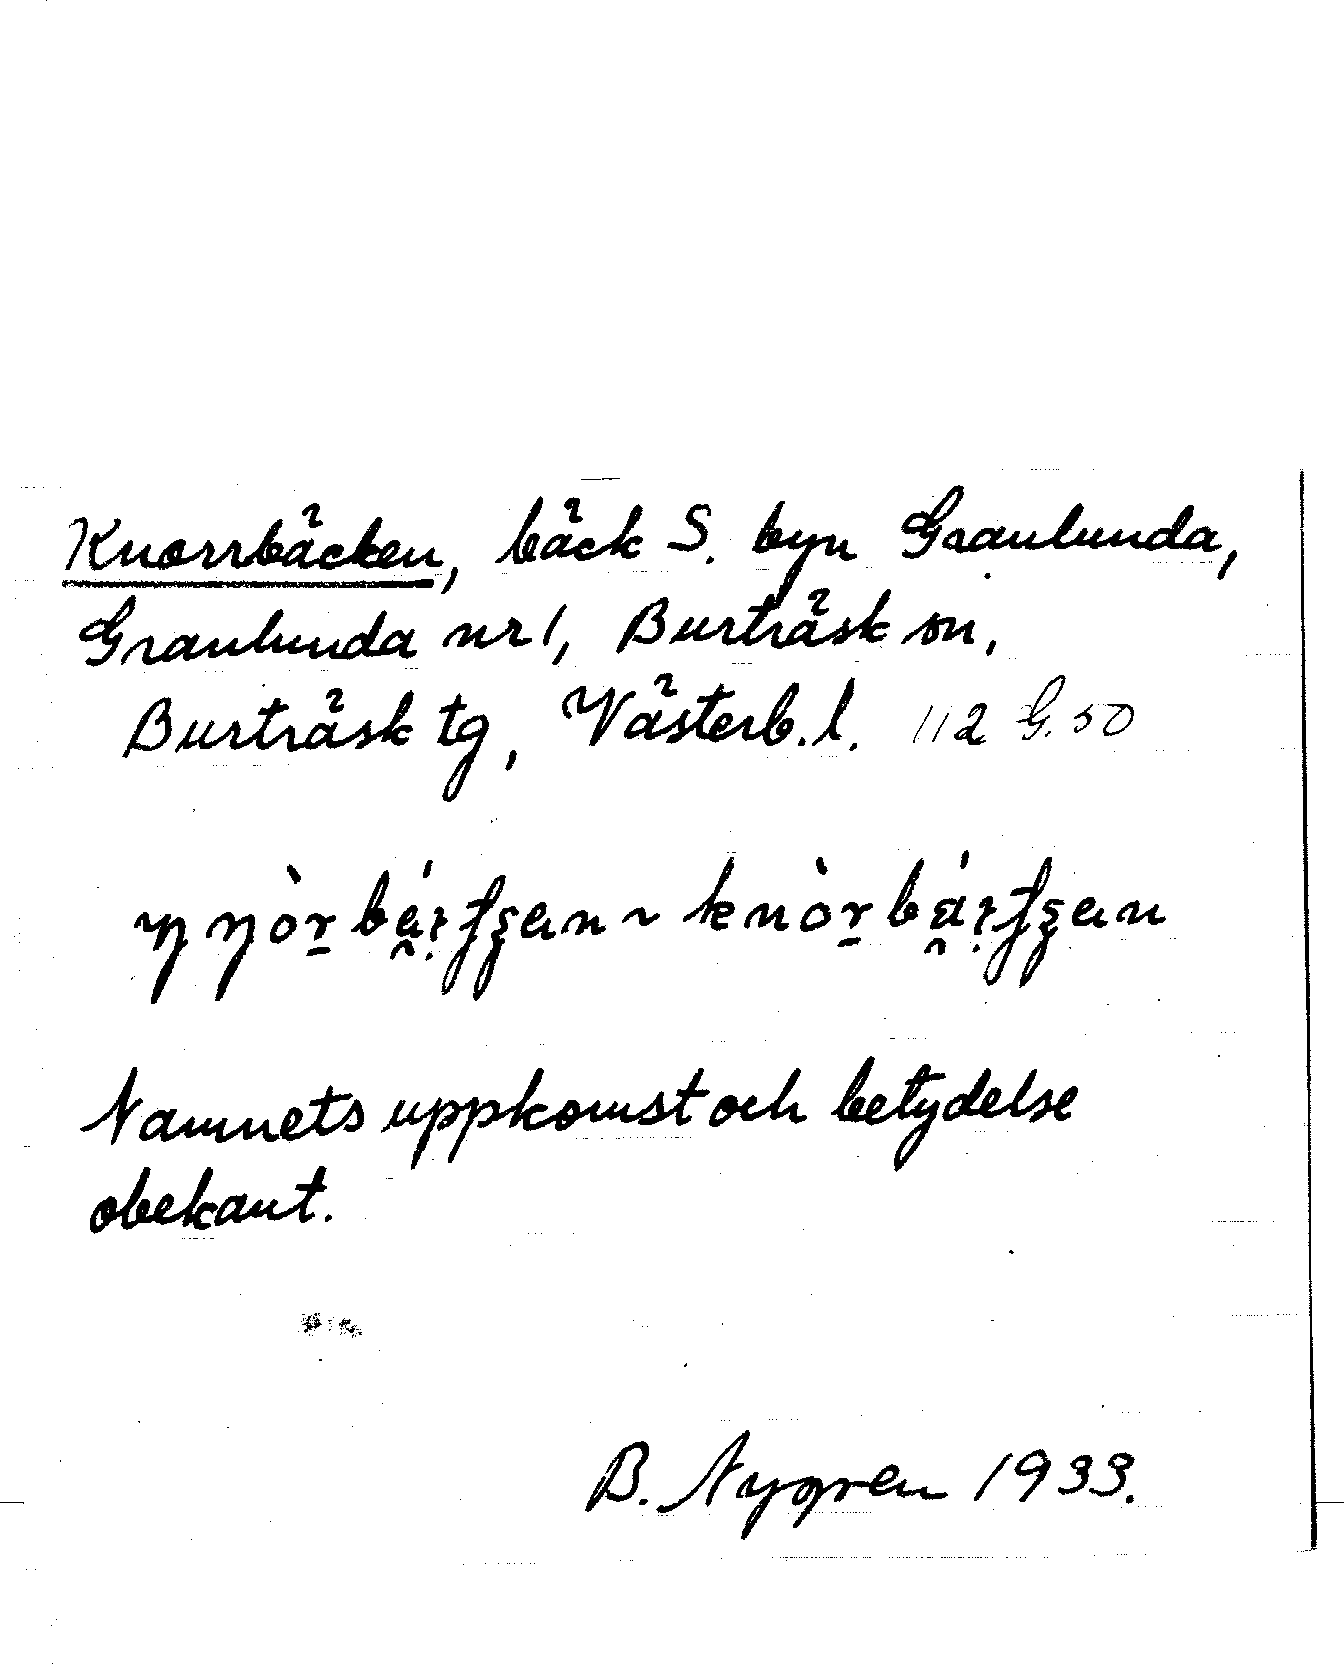 Knorrbäcken, bäck S. byn Granlunda,
Granlunda nr 1, Burträsk sn,
Burträsk tg, Västerb. l. 112 G. 50
Namnets uppkomst och betydelse
obekant.
B. Nygren 1933.